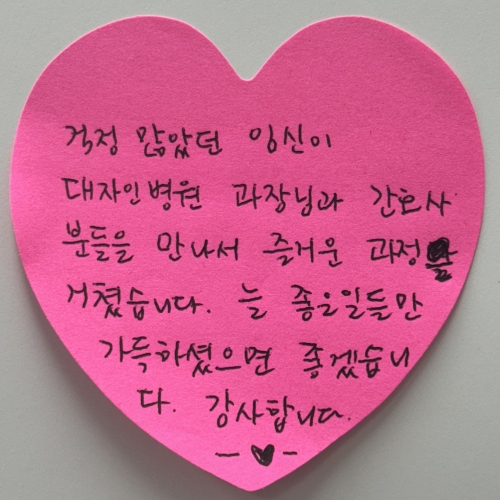 걱정 많았던 임신이
대자인병원 과장님과 간호사
분들을 만나서 즐거운 과정을
거쳤습니다. 늘 좋은일들만
가득하셨으면 좋겠습니
다. 감사합니다.